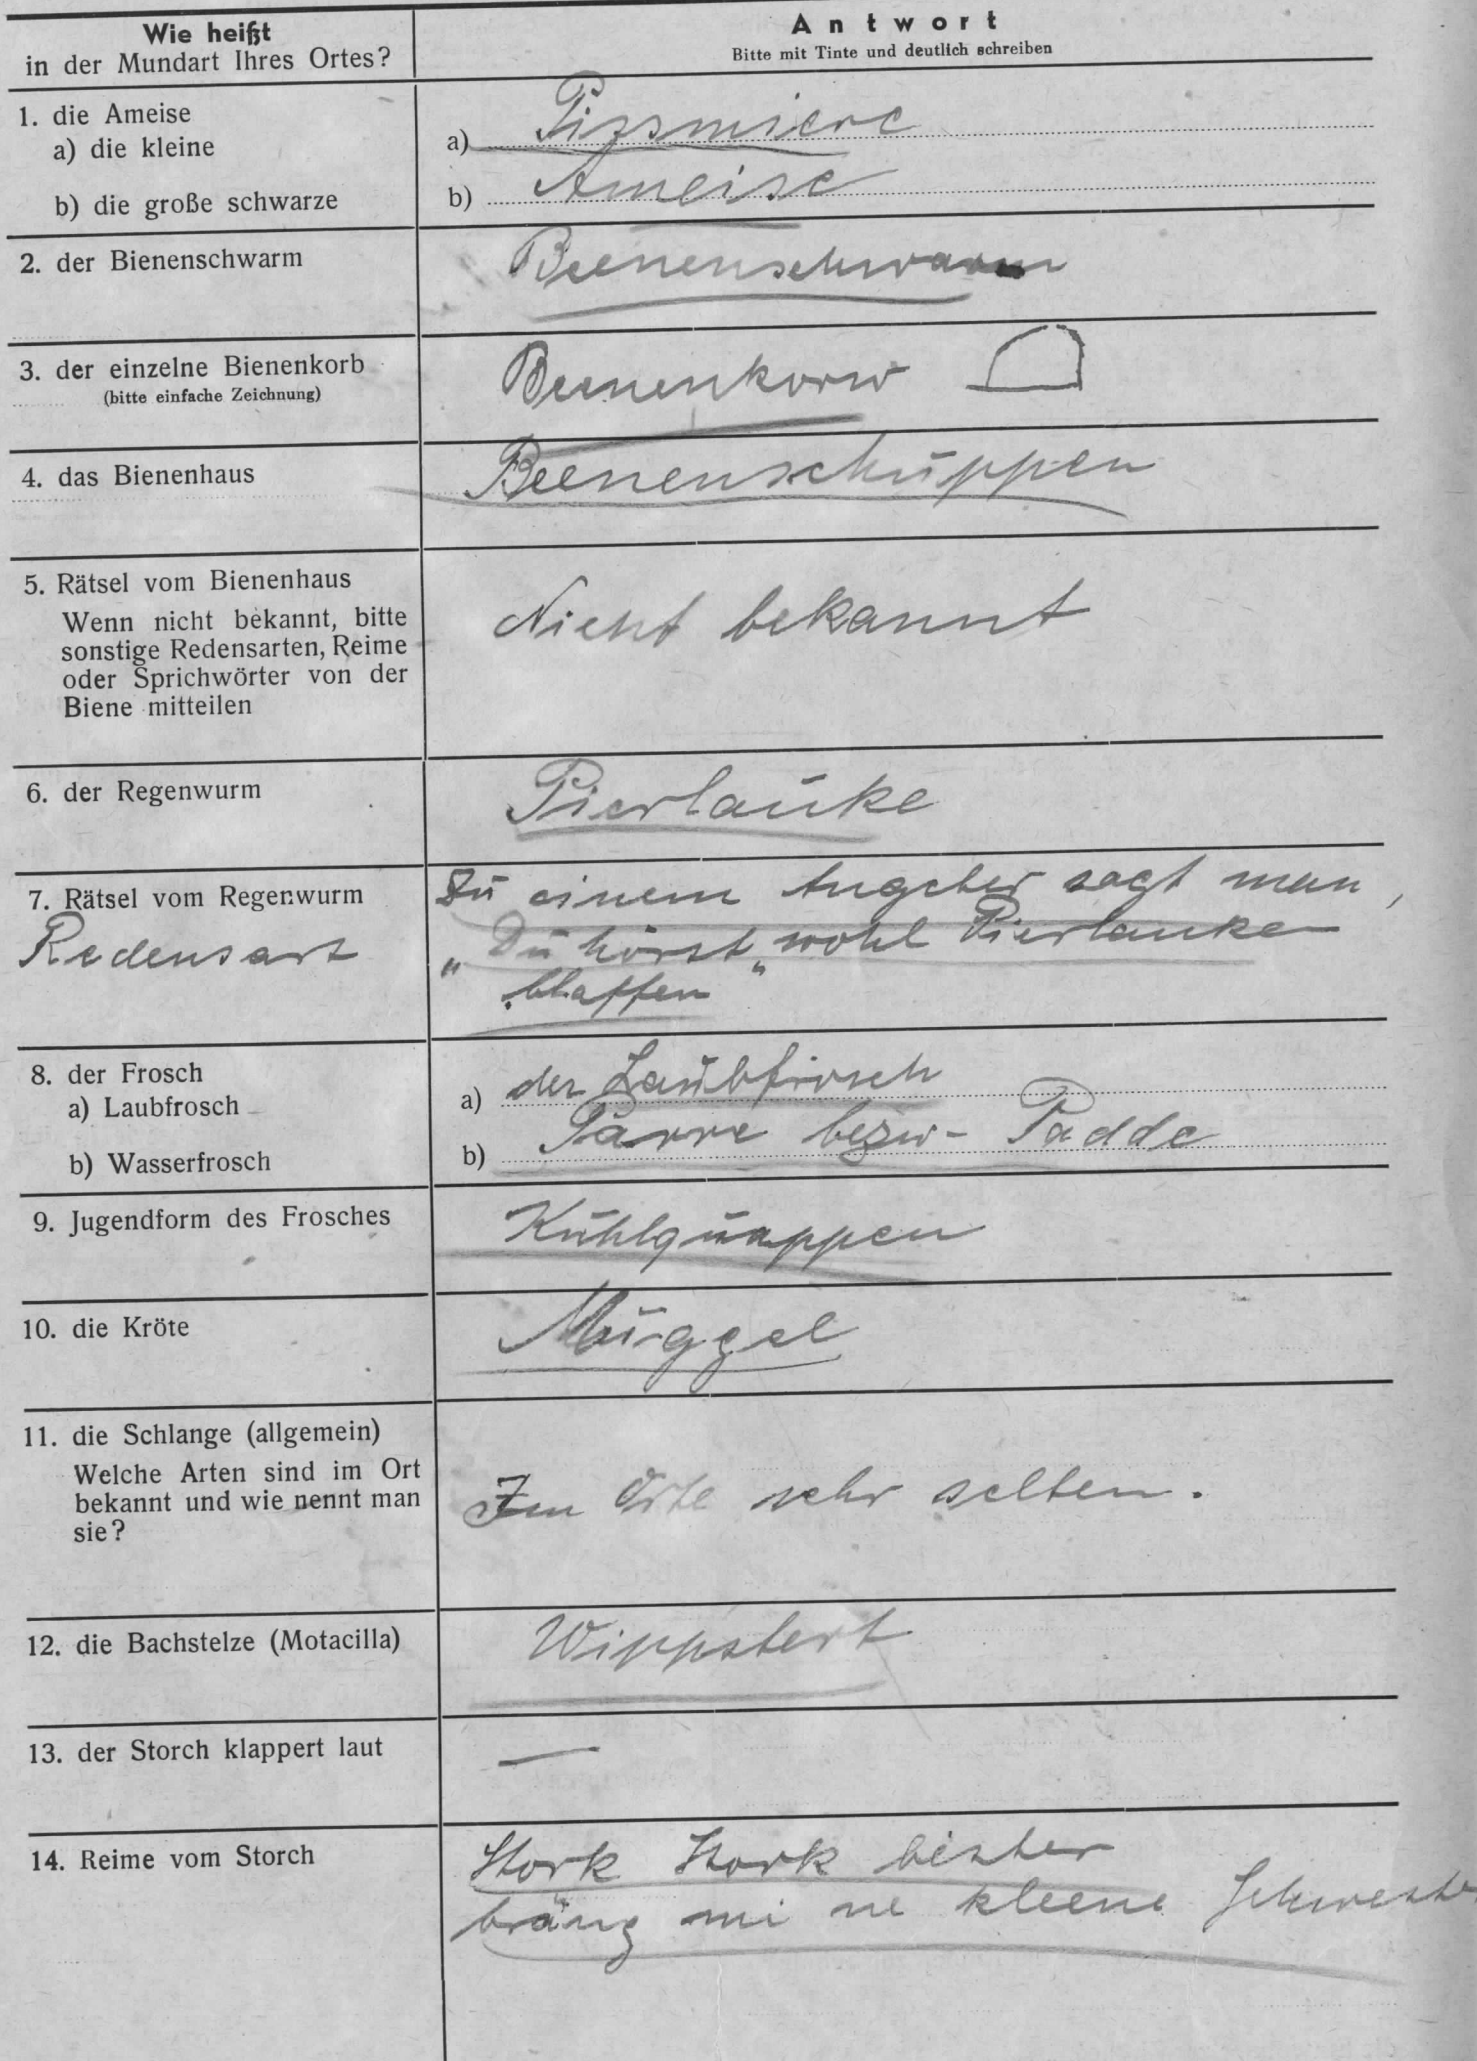 Wie heißt
in der Mundart Ihres Ortes?
Antwort
Bitte mit Tinte und deutlich schreiben
1. die Ameise
a) die kleine
a) Pissmiere
b) die große schwarze
b) Ameise
2. der Bienenschwarm
Beenenschwarm
3. der einzelne Bienenkorb
(bitte einfache Zeichnung)
Beenenkorw
4. das Bienenhaus
Beenenschuppen
5. Rätsel vom Bienenhaus
Wenn nicht bekannt, bitte
sonstige Redensarten, Reime
oder Sprichwörter von der
Biene mitteilen
Nicht bekannt
6. der Regenwurm
Pierlauke
7. Rätsel vom Regenwurm
Redensart
Zu einem Angeber sagt man,
„Du hörst wohl Pierlauken
blaffen"
8. der Frosch
a) Laubfrosch
a) der Laubfrosch
b) Wasserfrosch
b) Parre bezw- Padde
9. Jugendform des Frosches
Kuhlquappen
10. die Kröte
Muggel
11. die Schlange (allgemein)
Welche Arten sind im Ort
bekannt und wie nennt man
sie?
Im Orte sehr selten.
12. die Bachstelze (Motacilla)
Wippstert
13. der Storch klappert laut
—
14. Reime vom Storch
Stork Stork bester
bräng mi ne kleene Schweste